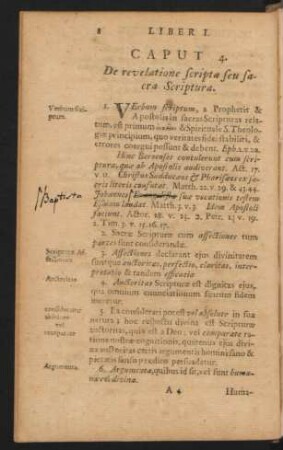 8 LIBER I.
CAPUT 4.
De revelatione scripta seu sacra Scriptura.
Verbum scriptum.
1. VErbum scriptum, a Prophetis &
Apostolis in sacras Scripturas relatum,
est primum & Spirituale S. Theologiæ
principium, quo veritates fidei stabiliri, &
errores convinci possunt & debent. Eph. 2. v. 20.
Hinc Beroenses contulerunt cum scripturis,
quæ ab Apostolis audiverant. Act. 17.
v. 11. Christus Sadducæos & Pharisæos ex sacris
literis confutat. Matth. 22. v. 29. & 43. 44.
Baptista
Johannes suæ vocationis testem
Esaiam laudat. Matth. 3. v. 3. Idem Apostoli
faciunt. Actor. 28. v. 23. 2. Petr. 1. v. 19.
2. Tim. 3. v. 15. 16. 17.
2. Sacra Scriptura cum affectiones tum
partes sunt considerandæ.
Scripturæ Affectiones.
3. Affectiones declarant ejus divinitatem
suntque auctoritas, perfectio, claritas, interpretatio
& tandem efficatia
Authoritas
4. Auctoritas Scripturæ est dignitas ejus,
qua omnium enunciationum suarum fidem
meretur.
consideratur
absolute
vel
comparate
5. Ea considerari potest vel absolute in sua
natura; hoc respectu divina est Scripturæ
auctoritas, quia est à Deo; vel comparate ratione
nostræ cognitionis, quatenus ejus divina
auctoritas certis argumentis hominibus &
pietatis sensu præditis persuadetur.
Argumenta.
6. Argumenta, quibus id fit, vel sunt humana
vel divina.
A 4 Huma-